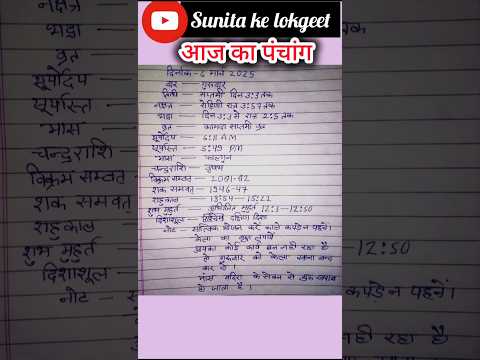 Sunita ke lokgeet
आज का पंचांग
दिनांक - 6 मार्च 2025
वार - गुरुवार
तिथी - सप्तमी दिन 3:3 तक
नक्षत्र - रोहिणी रात्र 3:57 तक
भद्रा - दिन 3:3 से रात्र 2:5 तक
व्रत - कामदा सप्तमी व्रत
सूर्योदय - 6:11 AM
सूर्यास्त - 5:49 PM
मास - फाल्गुन
चन्द्रराशि - वृषभ
विक्रम सम्वत - 2081-82
शक सम्वत - 1946-47
राहुकाल - 13:54 - 15:22
शुभ मुहुर्त - अभिजित मुहुर्त 12:3 - 12:50
दिशाशूल - दक्षिण दिशा
नोट - सात्विक भोजन करें काले कपडेन पहनें।
केला का वृक्ष लगायें
आपका कोई कार्य बन नही रहा है
तो गुरुवार को केला खाना बन्द
कर दें।
मांस मदिरा के सेवन से गुरु खराब
हो जाता है।
नक्षत्र
भद्रा
व्रत
सूर्योदय
सूर्यास्त
मास
चन्द्रराशि
विक्रम सम्वत
शक सम्वत
राहुकाल
शुभ मुहुर्त
12:50
दिशाशूल
नोट
कपडेन पहनें।
नही रहा है